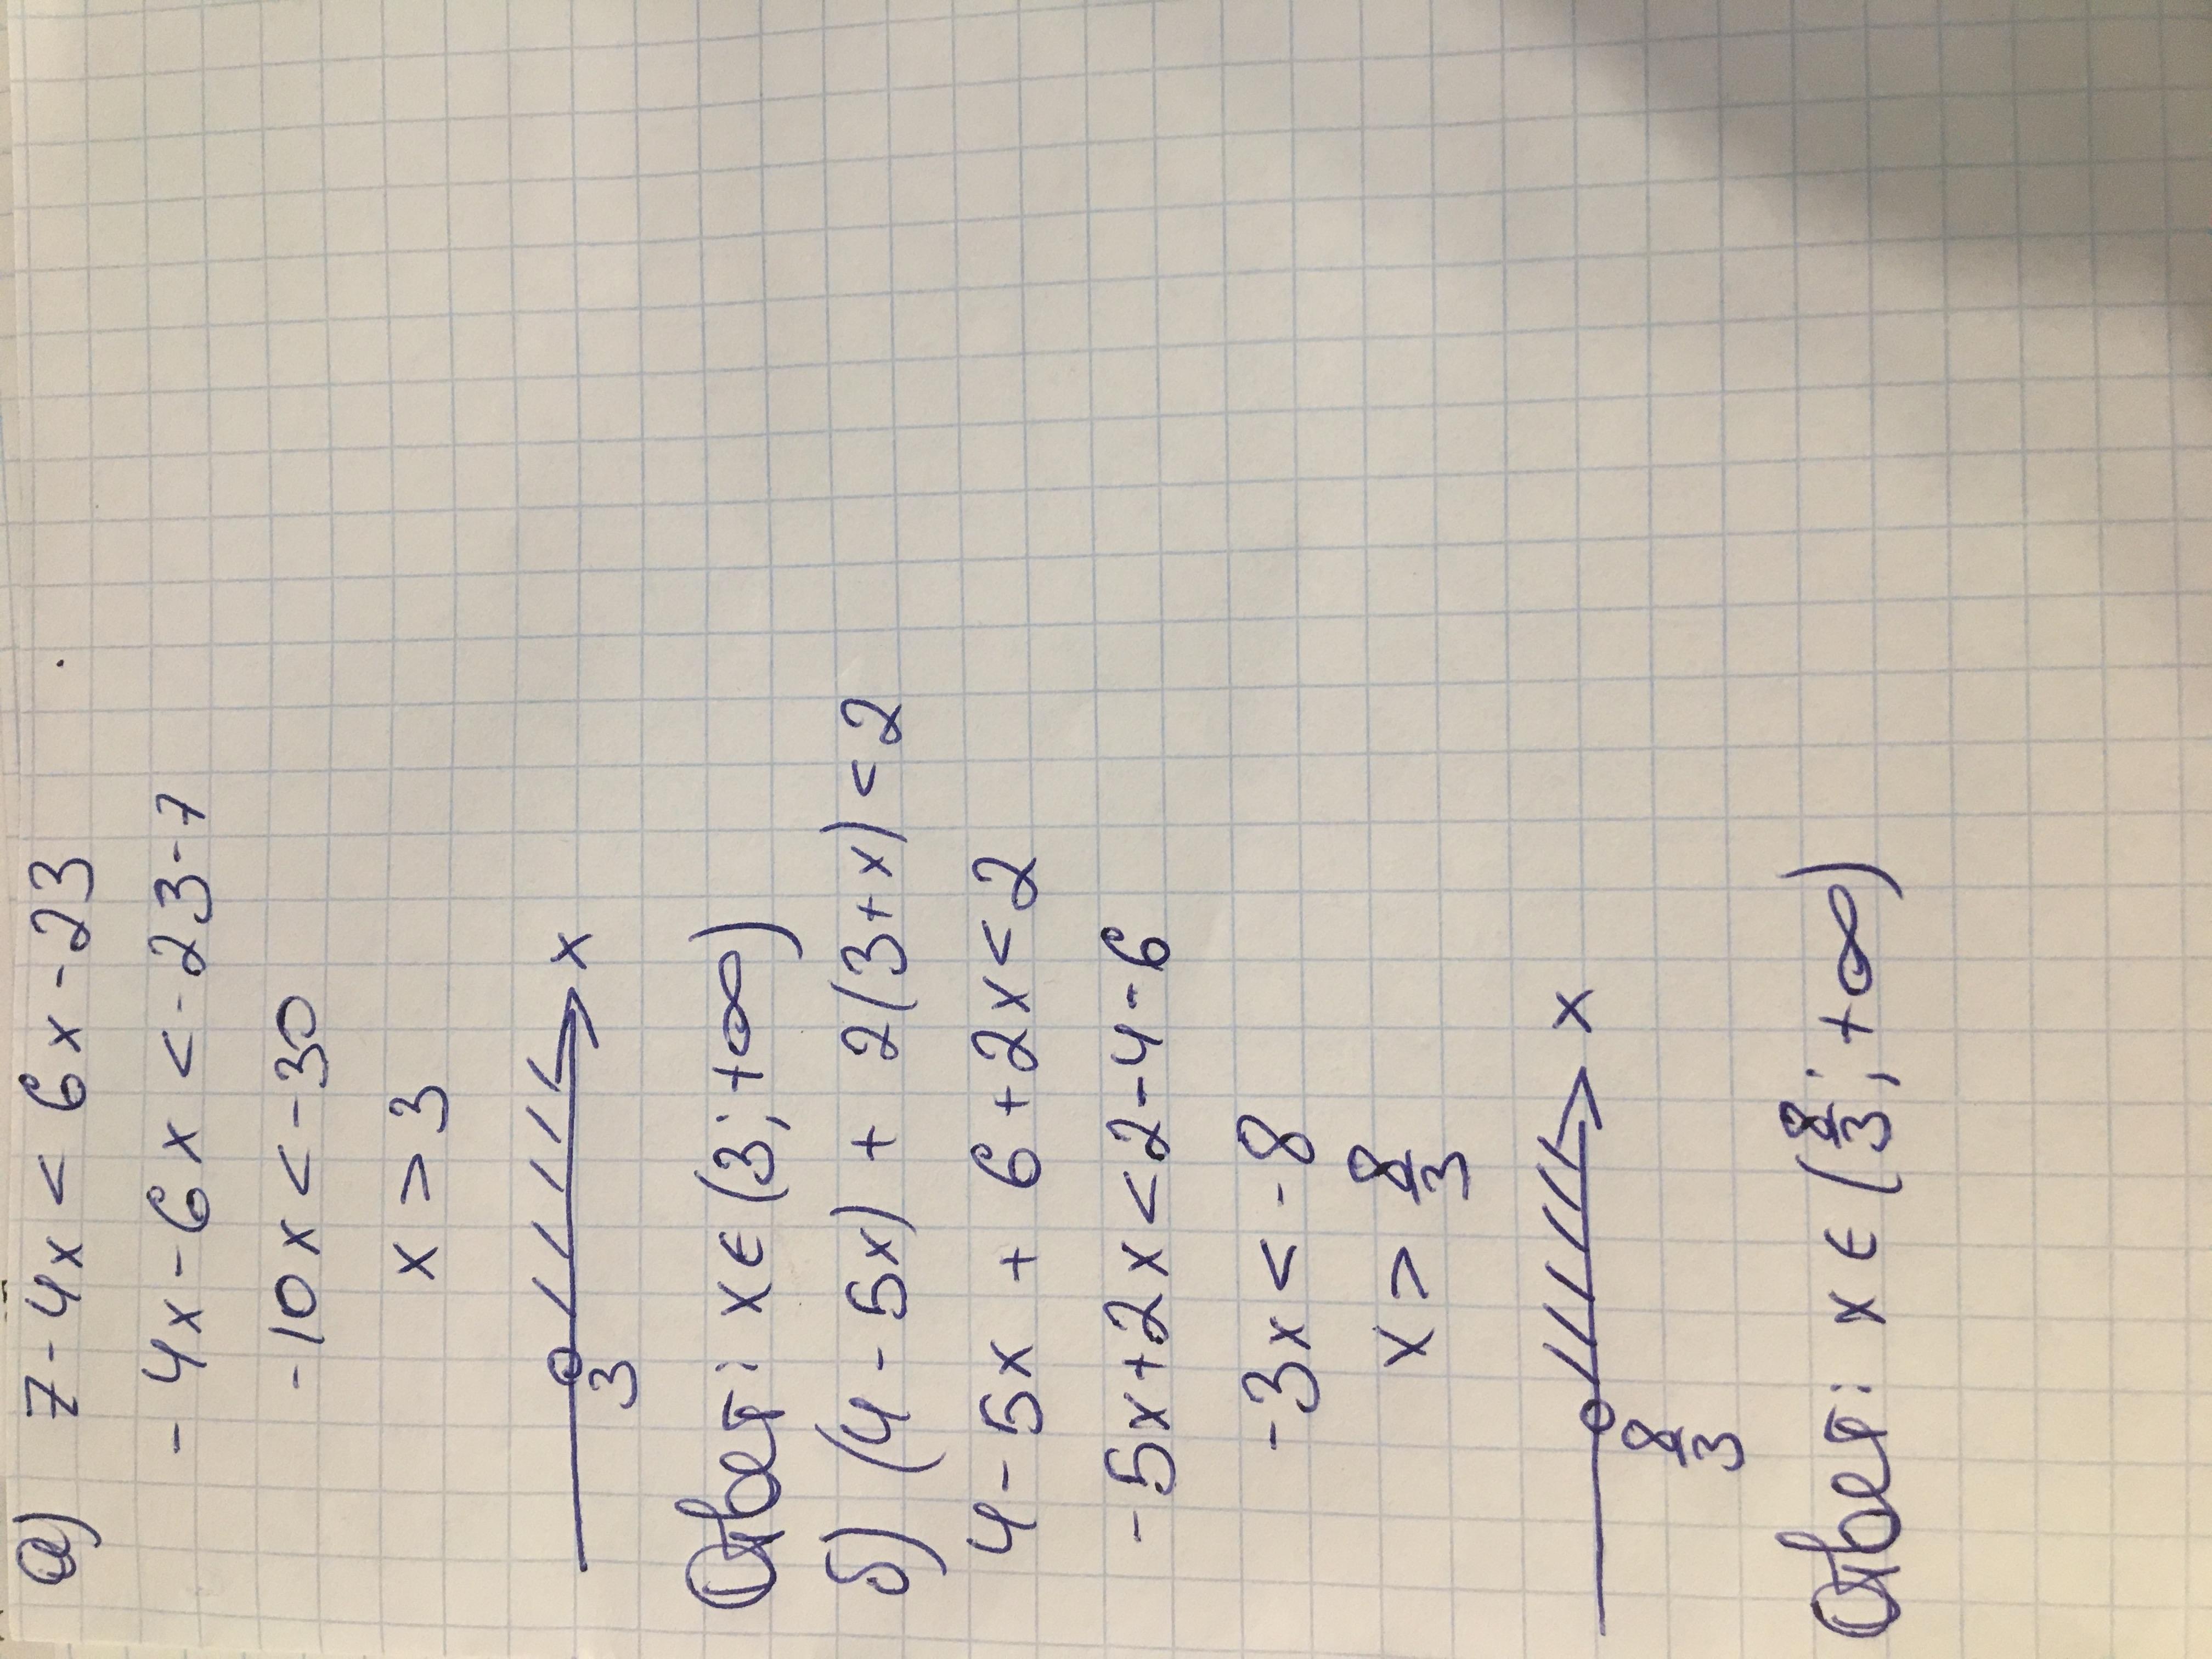 а) 7-4x < 6x-23
-4x-6x <-23-7
-10x <-30
x > 3
3 x
Ответ: x ∈ (3; +∞)
б) (4-5x) + 2(3+x) < 2
4-5x + 6+2x < 2
-5x+2x < 2-4-6
-3x < -8
x > 8/3
8/3 x
Ответ: x ∈ (8/3; +∞)